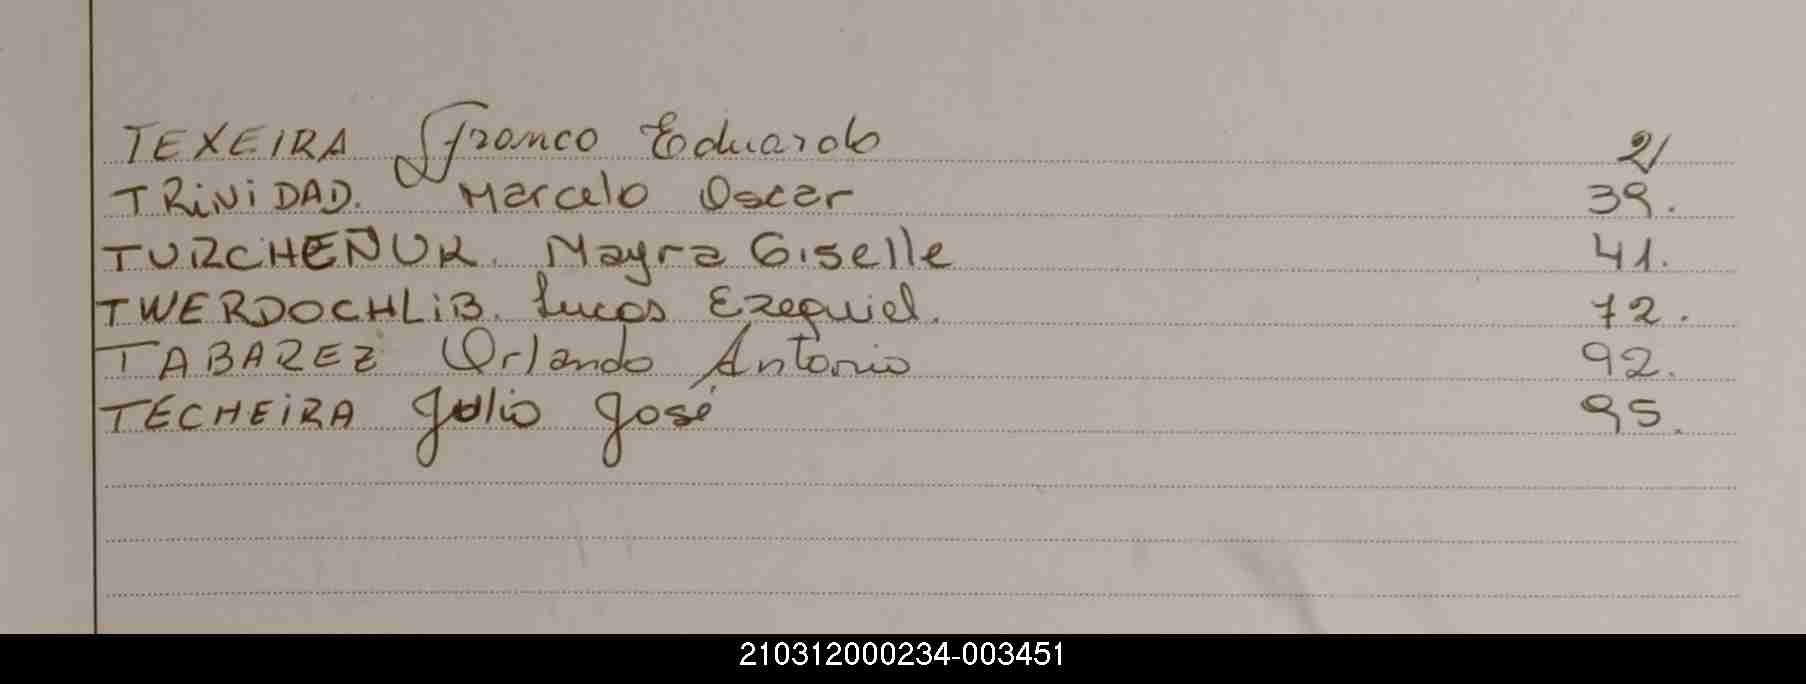 TEXEIRA Franco Eduardo 21
TRiNiDAD. Marcelo Oscar 39.
TURCHENUK. Mayra Giselle 41.
TWERDOCHLiB. Lucas Ezequiel. 72.
TABAREZ Orlando Antonio 92.
TECHEiRA Julio José 95.
210312000234-003451